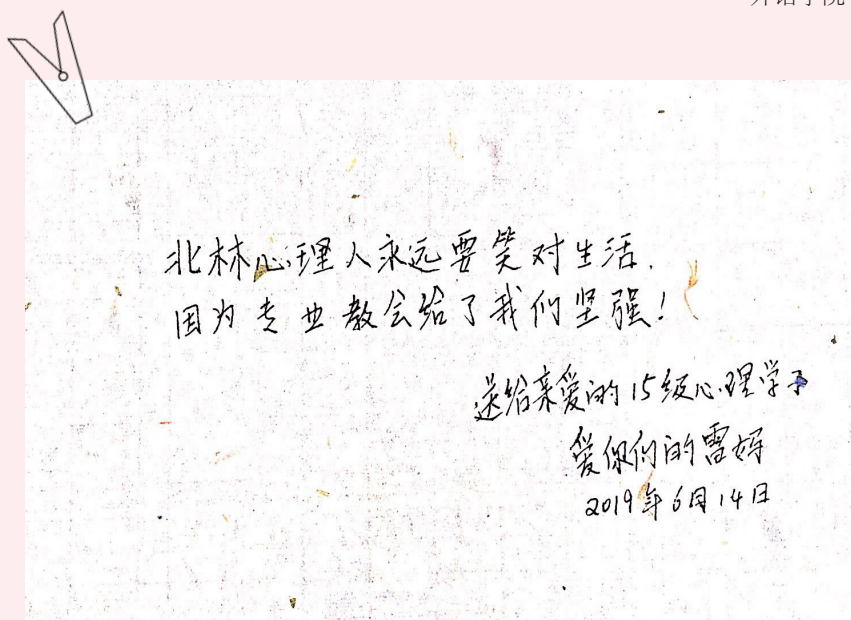 外语学院
北林心理人永远要笑对生活.
因为专业教会给了我们坚强!
送给亲爱的15级心理学子
爱你们的雷妈
2019年6月14日